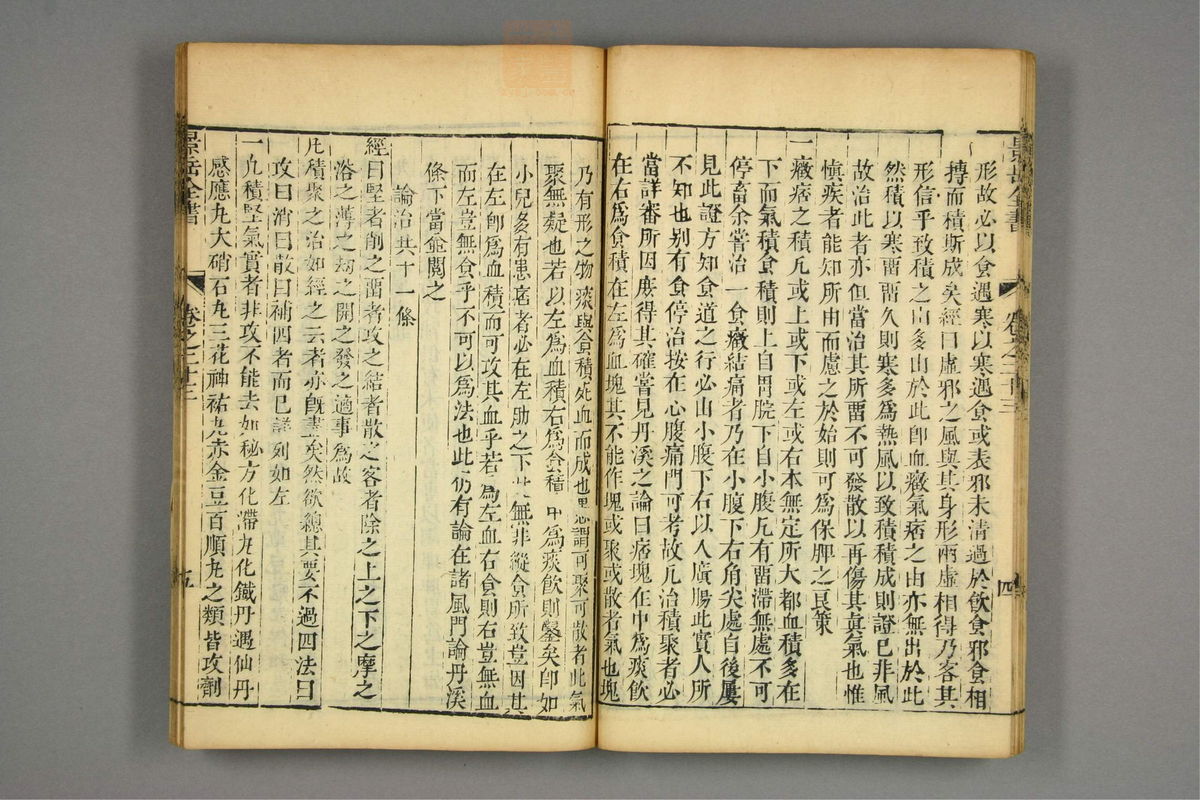 景岳全書 卷之二十三 四
形故必以食遇寒以寒遇食或表邪未清過於飲食邪食相
搏而積斯成矣經曰虛邪之風與其身形兩虛相得乃客其
形信乎致積之由多由於此即血癥氣痞之由亦無出於此
然積以寒畱畱久則寒多爲熱風以致積積成則證已非風
故治此者亦但當治其所畱不可發散以再傷其眞氣也惟
愼疾者能知所由而慮之於始則可爲保脾之良策
一癥痞之積凡或上或下或左或右本無定所大都血積多在
下而氣積食積則上自胃脘下自小腹凡有畱滯無處不可
停畜余嘗治一食癥結痛者乃在小腹下右角尖處自後屢
見此證方知食道之行必由小腹下右以人廣腸此實人所
不知也别有食停治按在心腹痛門可考故凡治積聚者必
當詳審所因庶得其確嘗見丹溪之論曰痞塊在中爲痰飲
在右爲食積在左爲血塊其不能作塊或聚或散者氣也塊
乃有形之物痰與食積死血而成也愚謂可聚可散者此氣
聚無疑也若以左爲血積右爲食積中爲痰飲則鑿矣卽如
小兒多有患痞者必在左肋之下此無非縱食所致豈因其
在左卽爲血積而可攻其血乎若爲左血右食則右豈無血
而左豈無食乎不可以爲法也此仍有論在諸風門論丹溪
條下當竝閱之
論治共十一條
經曰堅者削之畱者攻之結者散之客者除之上之下之摩之
浴之薄之劫之開之發之適事爲故
凡積聚之治如經之云者亦旣盡矣然欲總其要不過四法曰
攻曰消曰散曰補四者而已詳列如左
一凡積堅氣實者非攻不能去如秘方化滯丸化鐵丹遇仙丹
感應丸大硝石丸三花神祐丸赤金豆百順丸之類皆攻劑
景岳全書 卷之二十三 五